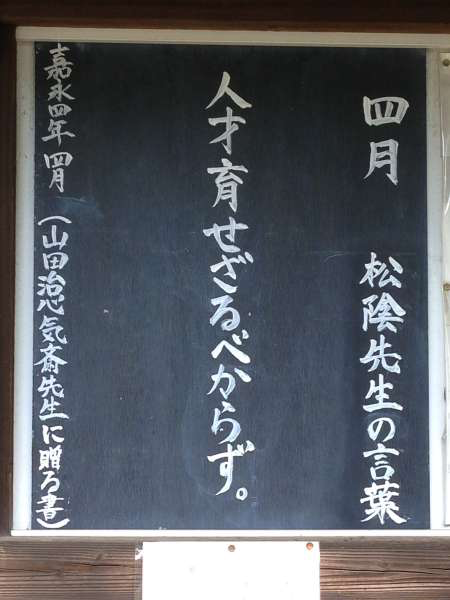 四月　松陰先生の言葉
人才育せざるべからず。
嘉永四年四月（山田治心気斎先生に贈る書）